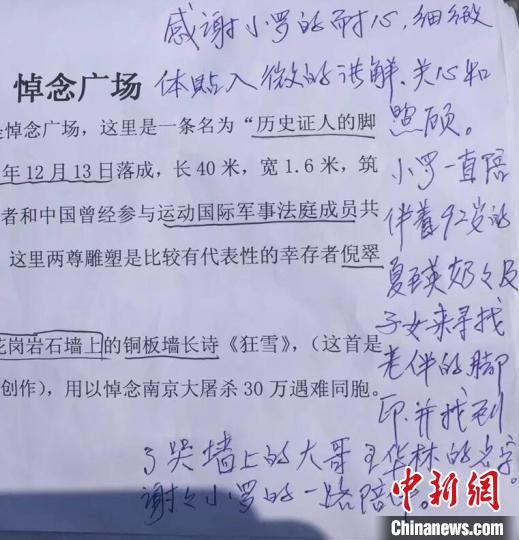 感谢小罗的耐心,细致
体贴入微的讲解、关心和
照顾。
小罗一直陪
伴着92岁的
夏 英奶々及
子女来寻找
老伴的脚
印.并找到
了哭墙上的大哥王华林的名字。
谢々小罗的一路陪
悼念广场
是悼念广场，这里是一条名为“历史证人的脚
年12月13日落成，长40米，宽1.6米，筑
者和中国曾经参与运动国际军事法庭成员共
这里两尊雕塑是比较有代表性的幸存者倪翠
花岗岩石墙上的铜板墙长诗《狂雪》，（这首是
创作），用以悼念南京大屠杀30万遇难同胞。
中新网
Chinanews.com